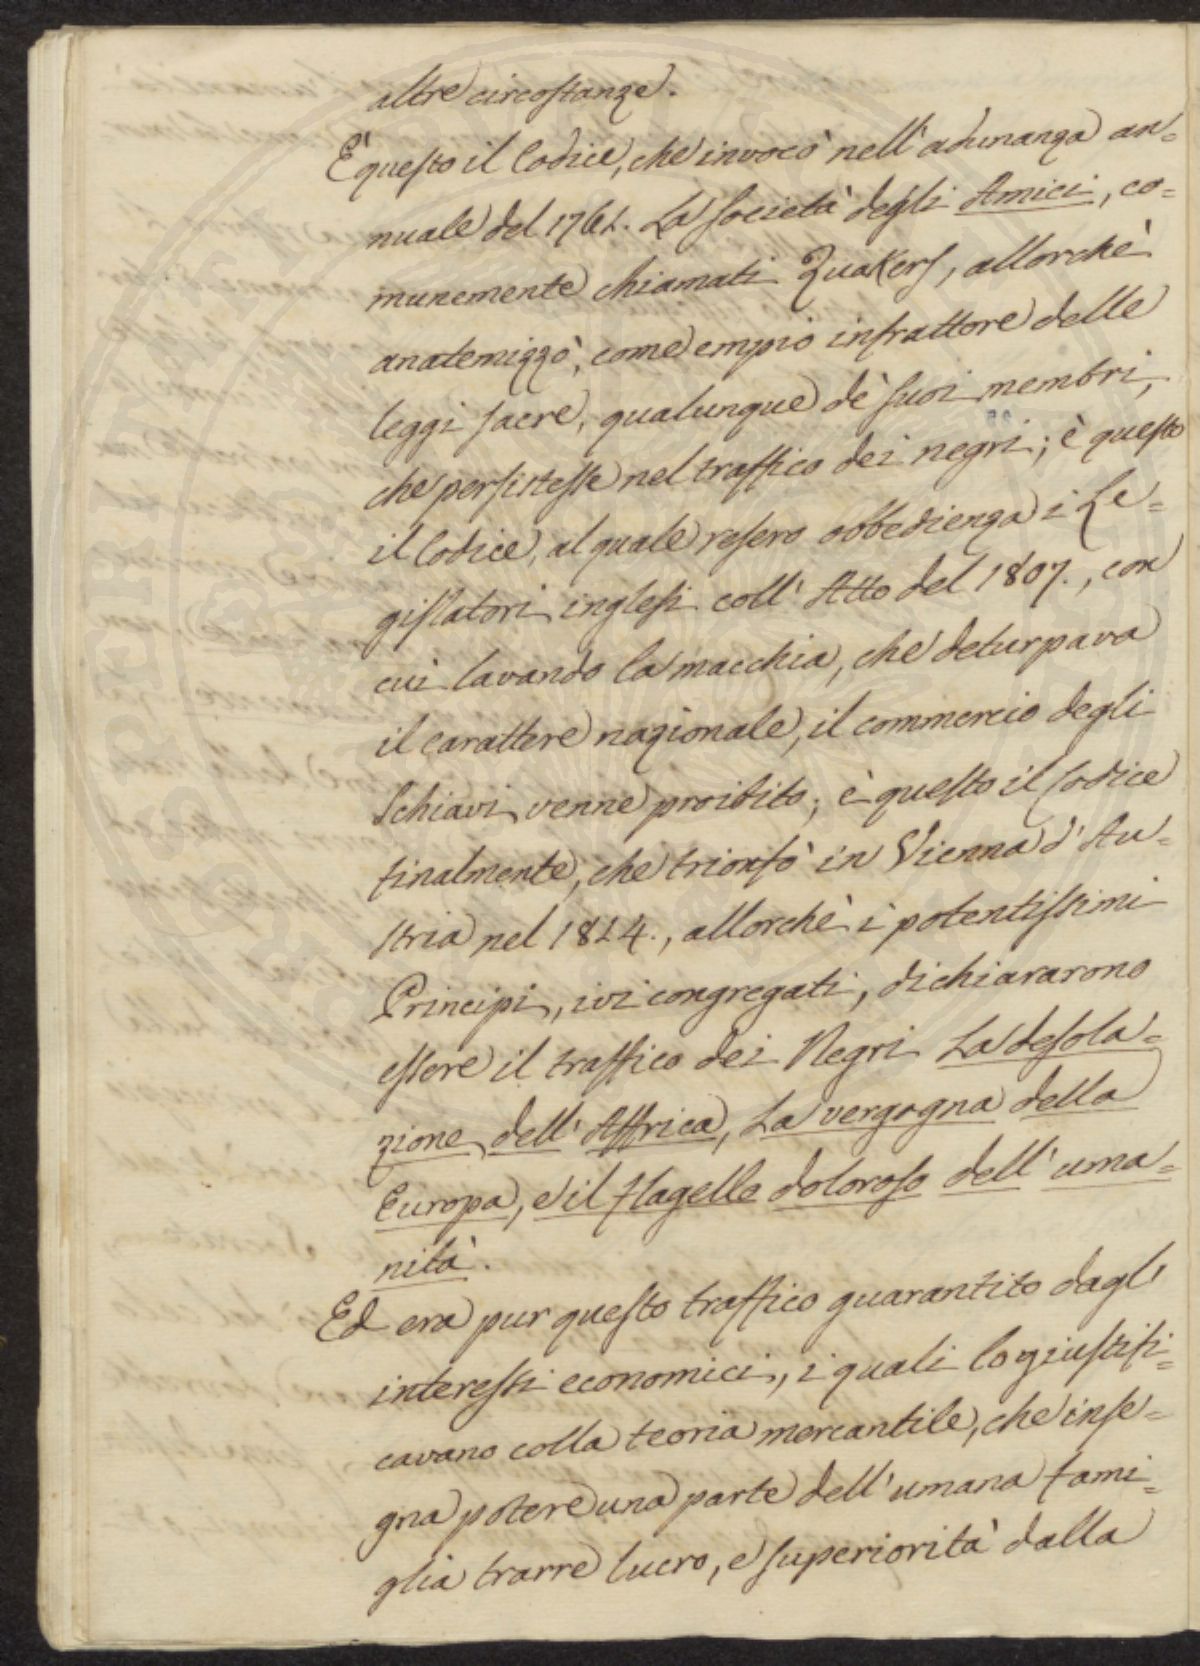 altre circostanze.
È questo il Codice, che invocò nell'adunanza an=
nuale del 1761. La Società degli Amici, co=
munemente chiamati Quakers, allorchè
anatemizzò, come empio infrattore delle
leggi sacre, qualunque de' suoi membri,
che persistesse nel traffico dei negri; è questo
il Codice, al quale resero obbedienza i Le=
gislatori inglesi coll' Atto del 1807., con
cui lavando la macchia, che deturpava
il carattere nazionale, il commercio degli
Schiavi venne proibito; è questo il Codice
finalmente, che trionfò in Vienna d'Au=
stria nel 1814., allorchè i potentissimi
Principi, ivi congregati, dichiararono
essere il traffico dei Negri La desola=
zione dell' Affrica, La vergogna della
Europa, e il flagello doloroso dell' uma=
nità.
Ed era pur questo traffico guarantito dagl'
interessi economici, i quali lo giustifi=
cavano colla teoria mercantile, che inse=
gna potere una parte dell'umana fami=
glia trarre lucro, e superiorità dalla